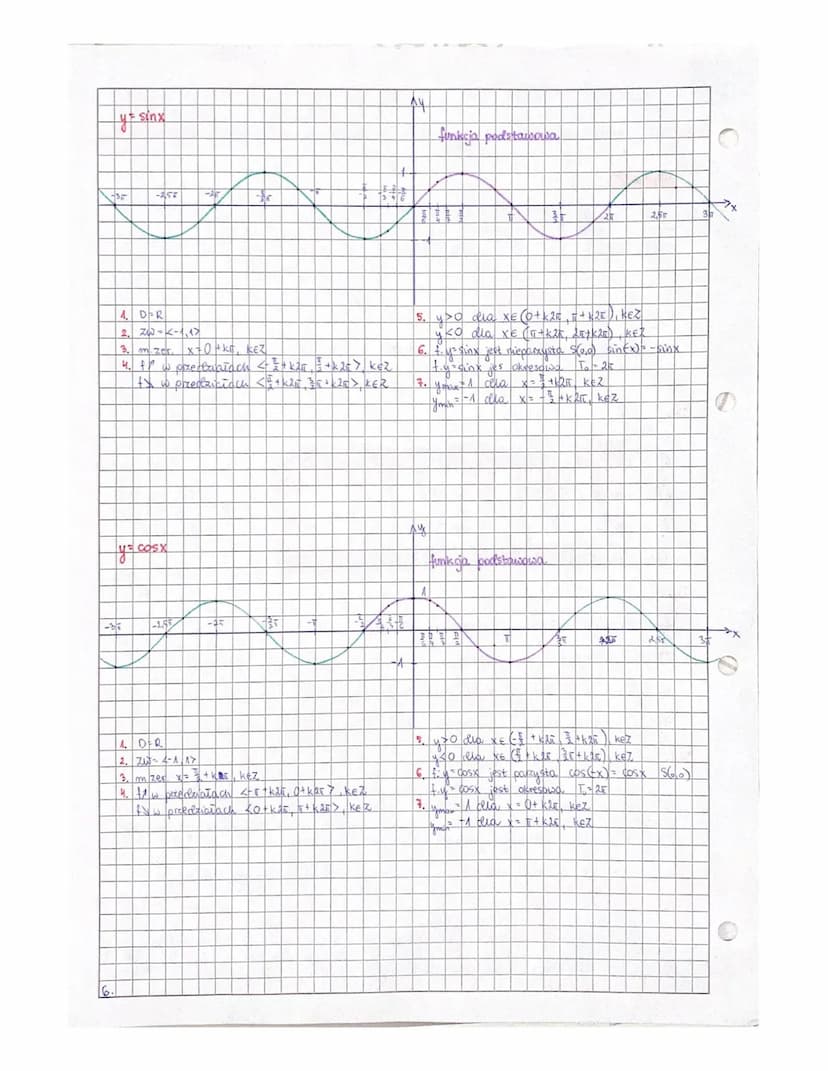 y = sinx
y
funkcja podstawowa
1
-3π -2,5π -2π -3/2π -π -π/2 -π/3 -π/4 -π/6
x
π/6 π/4 π/3 π/2 π 3/2π 2π 2,5π 3π
-1
1. D=R
2. ZW=<-1,1>
3. m.zer. x=0+kπ, k∈Z
4. f↗ w przedziałach <-π/2+k2π, π/2+k2π>, k∈Z
f↘ w przedziałach <π/2+k2π, 3/2π+k2π>, k∈Z
5. y>0 dla x∈(0+k2π, π+k2π), k∈Z
y<0 dla x∈(π+k2π, 2π+k2π), k∈Z
6. f. y=sinx jest nieparzysta S(0,0) sin(-x)=-sinx
f. y=sinx jes okresowa T₀=2π
7. ymax=1 dla x=π/2+k2π, k∈Z
ymin=-1 dla x=-π/2+k2π, k∈Z
y = cosx
y
funkcja podstawowa
1
-3π -2,5π -2π -3/2π -π -π/2
x
π/2 π 3/2π 2π 2,5π 3π
-1
1. D=R
2. ZW=<-1,1>
3. m.zer x=π/2+kπ, k∈Z
4. f↗ w przedziałach <-π+k2π, 0+k2π>, k∈Z
f↘ w przedziałach <0+k2π, π+k2π>, k∈Z
5. y>0 dla x∈(-π/2+k2π, π/2+k2π), k∈Z
y<0 dla x∈(π/2+k2π, 3/2π+k2π), k∈Z
6. f. y=cosx jest parzysta cos(-x)=cosx S(0,0)
f. y=cosx jest okresowa T₀=2π
7. ymax=1 dla x=0+k2π, k∈Z
ymin=-1 dla x=π+k2π, k∈Z
6.